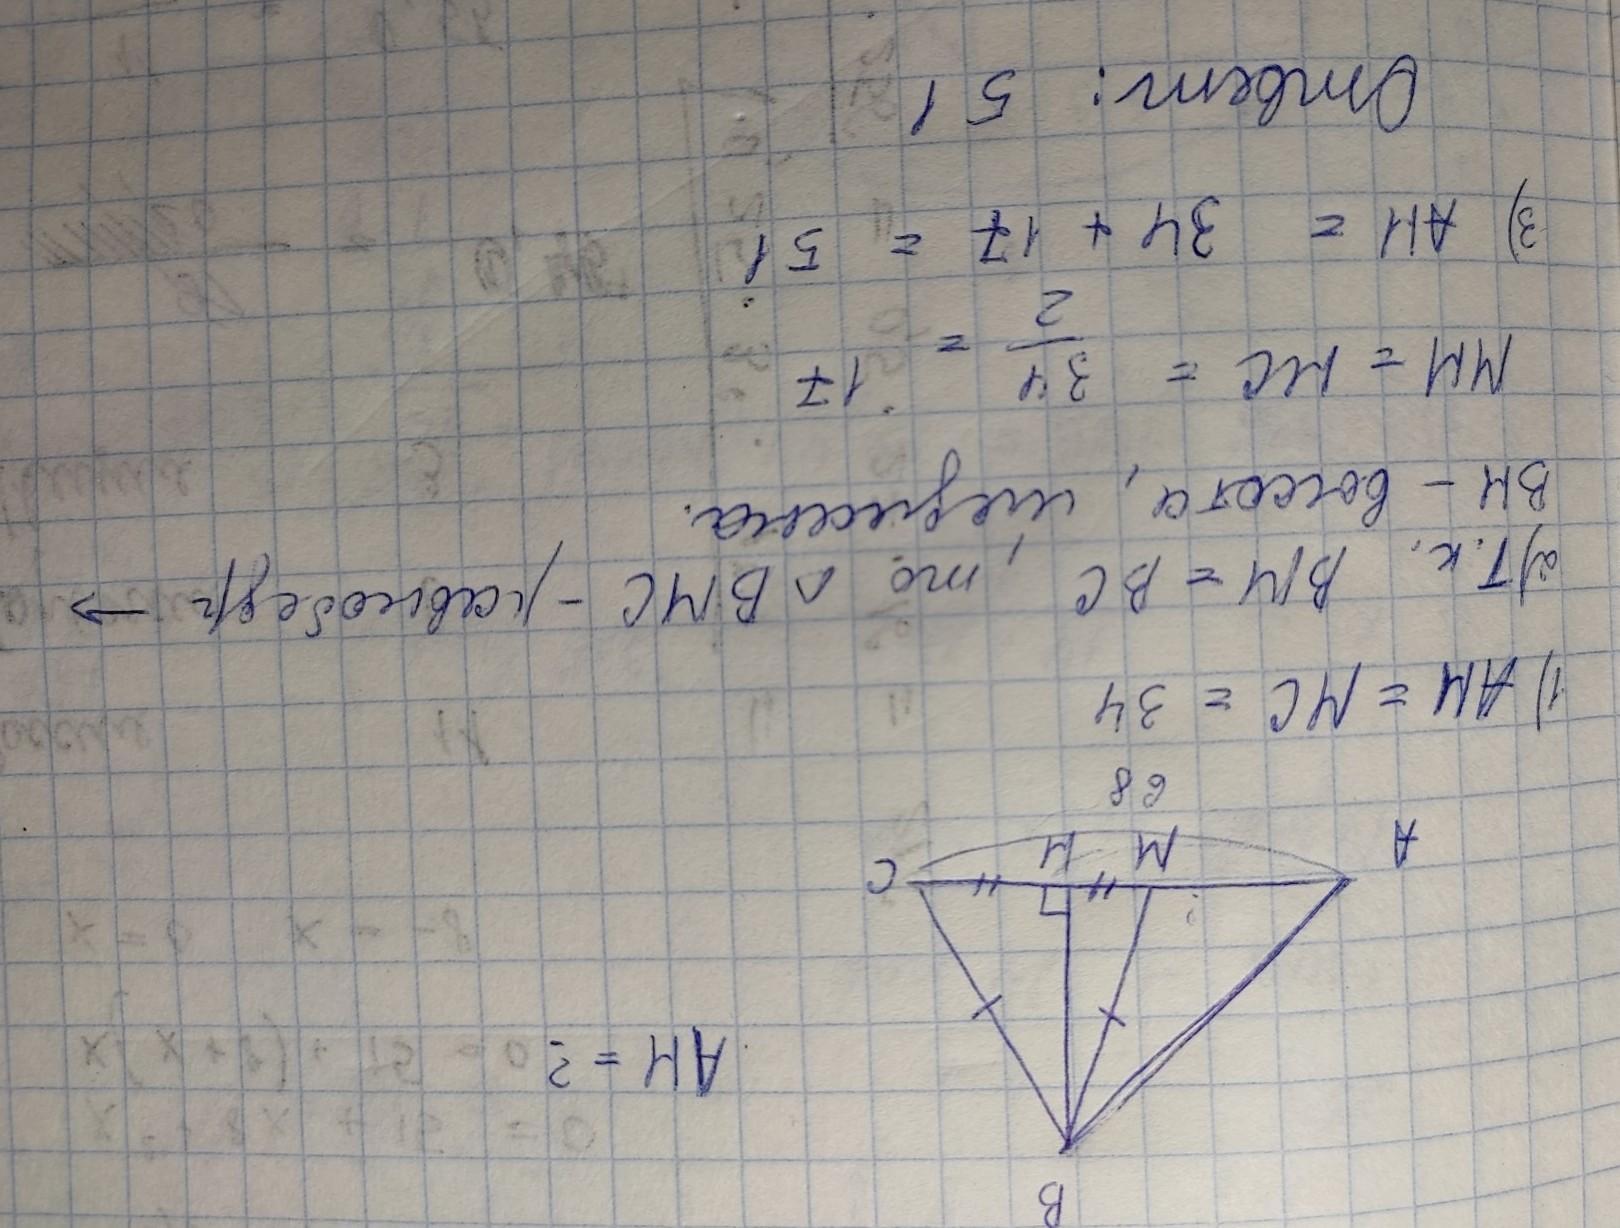 B
AH = ?
A
M
H
C
68
1) AM = MC = 34
2) Т.к. BM = BC, то △ BMC - равнобедр →
BH - высота, медиана.
MH = HC = 34/2 = 17
3) AH = 34 + 17 = 51
Ответ: 51